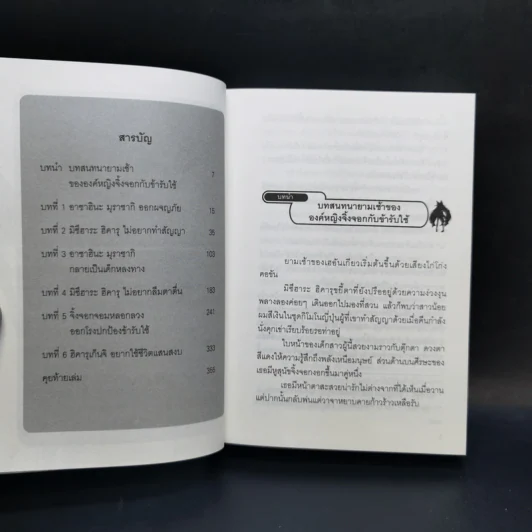 สารบัญ
บทนำ บทสนทนายามเช้า
ขององค์หญิงจิ้งจอกกับข้ารับใช้ 7
บทที่ 1 อาซาฮินะ มุราซากิ ออกผจญภัย 15
บทที่ 2 มิซึฮาระ ฮิคารุ ไม่อยากทำสัญญา 35
บทที่ 3 อาซาฮินะ มุราซากิ
กลายเป็นเด็กหลงทาง 103
บทที่ 4 มิซึฮาระ ฮิคารุ ไม่อยากลืมตาตื่น 183
บทที่ 5 จิ้งจอกจอมหลอกลวง
ออกโรงปกป้องข้ารับใช้ 241
บทที่ 6 ฮิคารุเกินจิ อยากใช้ชีวิตแสนสงบ 333
คุยท้ายเล่ม 355
บทนำ
บทสนทนายามเช้าของ
องค์หญิงจิ้งจอกกับข้ารับใช้
ยามเช้าของเฮอันเกียวเริ่มต้นขึ้นด้วยเสียงไก่โก่ง
คอขัน
มิซึฮาระ ฮิคารุขยี้ตาที่ยังปรืออยู่ด้วยความง่วงงุน
พลางลองค่อยๆ เดินออกไปมองที่สวน แล้วก็พบว่าสาวน้อย
ผมสีเงินในชุดกิโมโนญี่ปุ่นผู้ที่เขาทำสัญญาด้วยเมื่อคืนกำลัง
นั่งคุกเข่าเรียบร้อยรอท่าอยู่
ใบหน้าของเด็กสาวผู้นี้สวยงามราวกับตุ๊กตา ดวงตา
สีแดงให้ความรู้สึกถึงพลังเหนือมนุษย์ ส่วนด้านบนศีรษะของ
เธอมีหูสุนัขจิ้งจอกงอกขึ้นมาคู่หนึ่ง
เธอมีหน้าตาสะสวยน่ารักไม่ต่างจากที่ได้เห็นเมื่อวาน
แต่ปากนั้นกลับพ่นแต่วาจาหยาบคายก้าวร้าวเหลือรับ